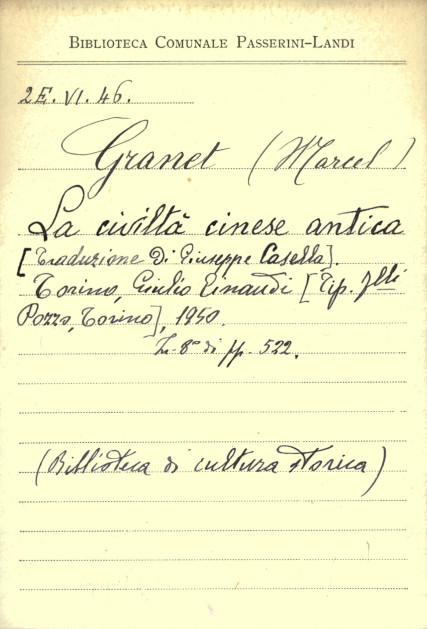 BIBLIOTECA COMUNALE PASSERINI-LANDI
2E. VI. 46.
Granet (Marcel)
La civiltà cinese antica
[Traduzione di Giuseppe Casella].
Torino, Giulio Einaudi [Tip. flli
Pozzo, Torino], 1950.
In-8º di pp. 522.
(Biblioteca di cultura storica)